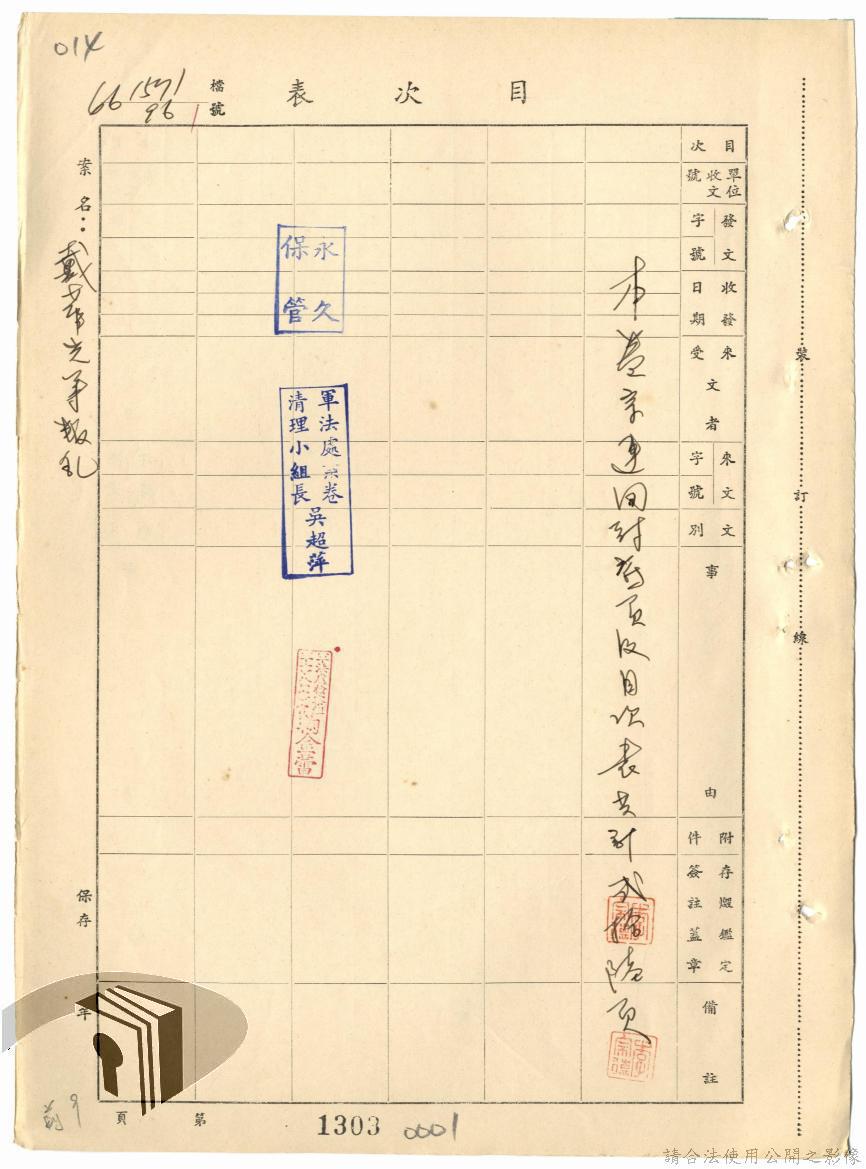 014
目次表
檔號
66 1571
96 1
目次
單位收文號
發文字號
收發日期
來文受文者
來文字號
文別
事由
附件
存燬鑑定簽註蓋章
備註
本卷宗連同封面頁及目次表共計貳拾陸頁
永久
保管
軍法處案卷
清理小組長
吳超萍
案名：戴華光等叛乱
保存
年
裝
訂
線
第
頁
1303
0001
請合法使用公開之影像